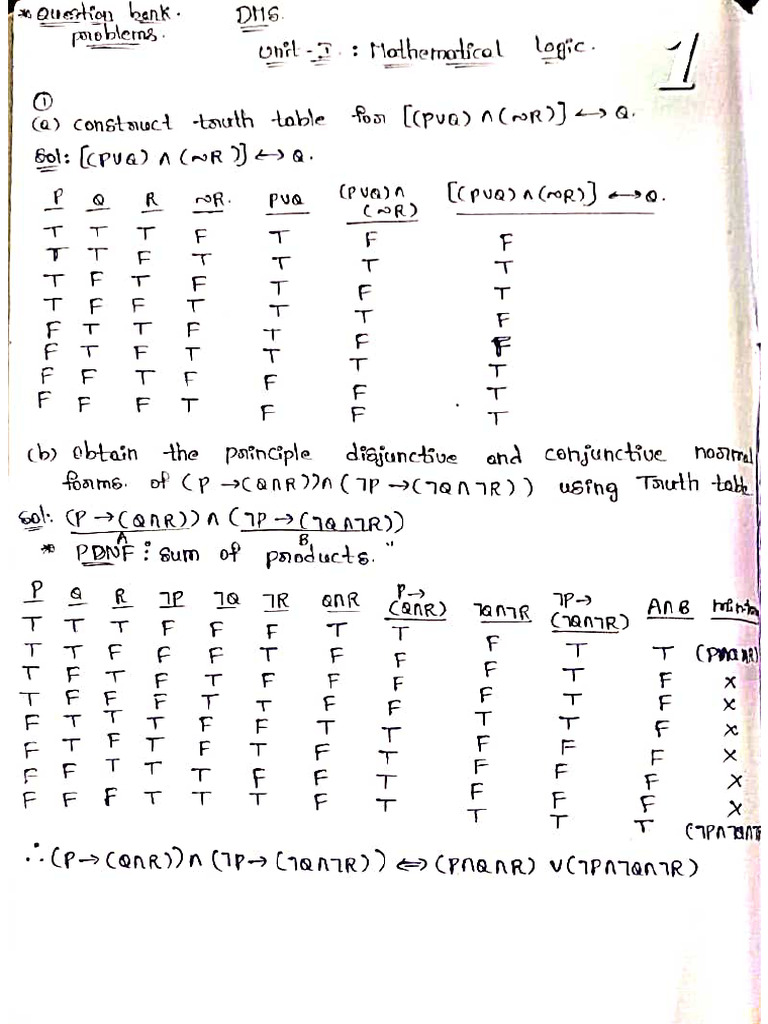 * Question bank. DMS.
problems.
Unit - I : Mathematical logic.
1
①
(a) construct truth table for [(P∨Q) ∧ (~R)] ↔ Q.
Sol: [(P∨Q) ∧ (~R)] ↔ Q.
P Q R ~R. P∨Q (P∨Q) ∧ (~R) [(P∨Q) ∧ (~R)] ↔ Q.
T T T F T F F
T T F T T T T
T F T F T F T
T F F T T T F
F T T F T F F
F T F T T T T
F F T F F F T
F F F T F F T
(b) obtain the principle disjunctive and conjunctive normal
forms. of (P →(Q∧R))∧(¬P →(¬Q∧¬R)) using Truth table
Sol: (P →(Q∧R))∧(¬P →(¬Q∧¬R))
A B
* PDNF : sum of products."
P Q R ¬P ¬Q ¬R Q∧R P→(Q∧R) ¬Q∧¬R ¬P→(¬Q∧¬R) A∧B
T T T F F F T T F T T (P∧Q∧R)
T T F F F T F F F T F x
T F T F T F F F F T F x
T F F F T T F F T T F x
F T T T F F T T F F F x
F T F T F T F T F F F x
F F T T T F F T F F F
F F F T T T F T T T T (¬P∧¬Q∧¬
∴ (P→(Q∧R))∧(¬P→(¬Q∧¬R)) ⇔ (P∧Q∧R) ∨(¬P∧¬Q∧¬R)